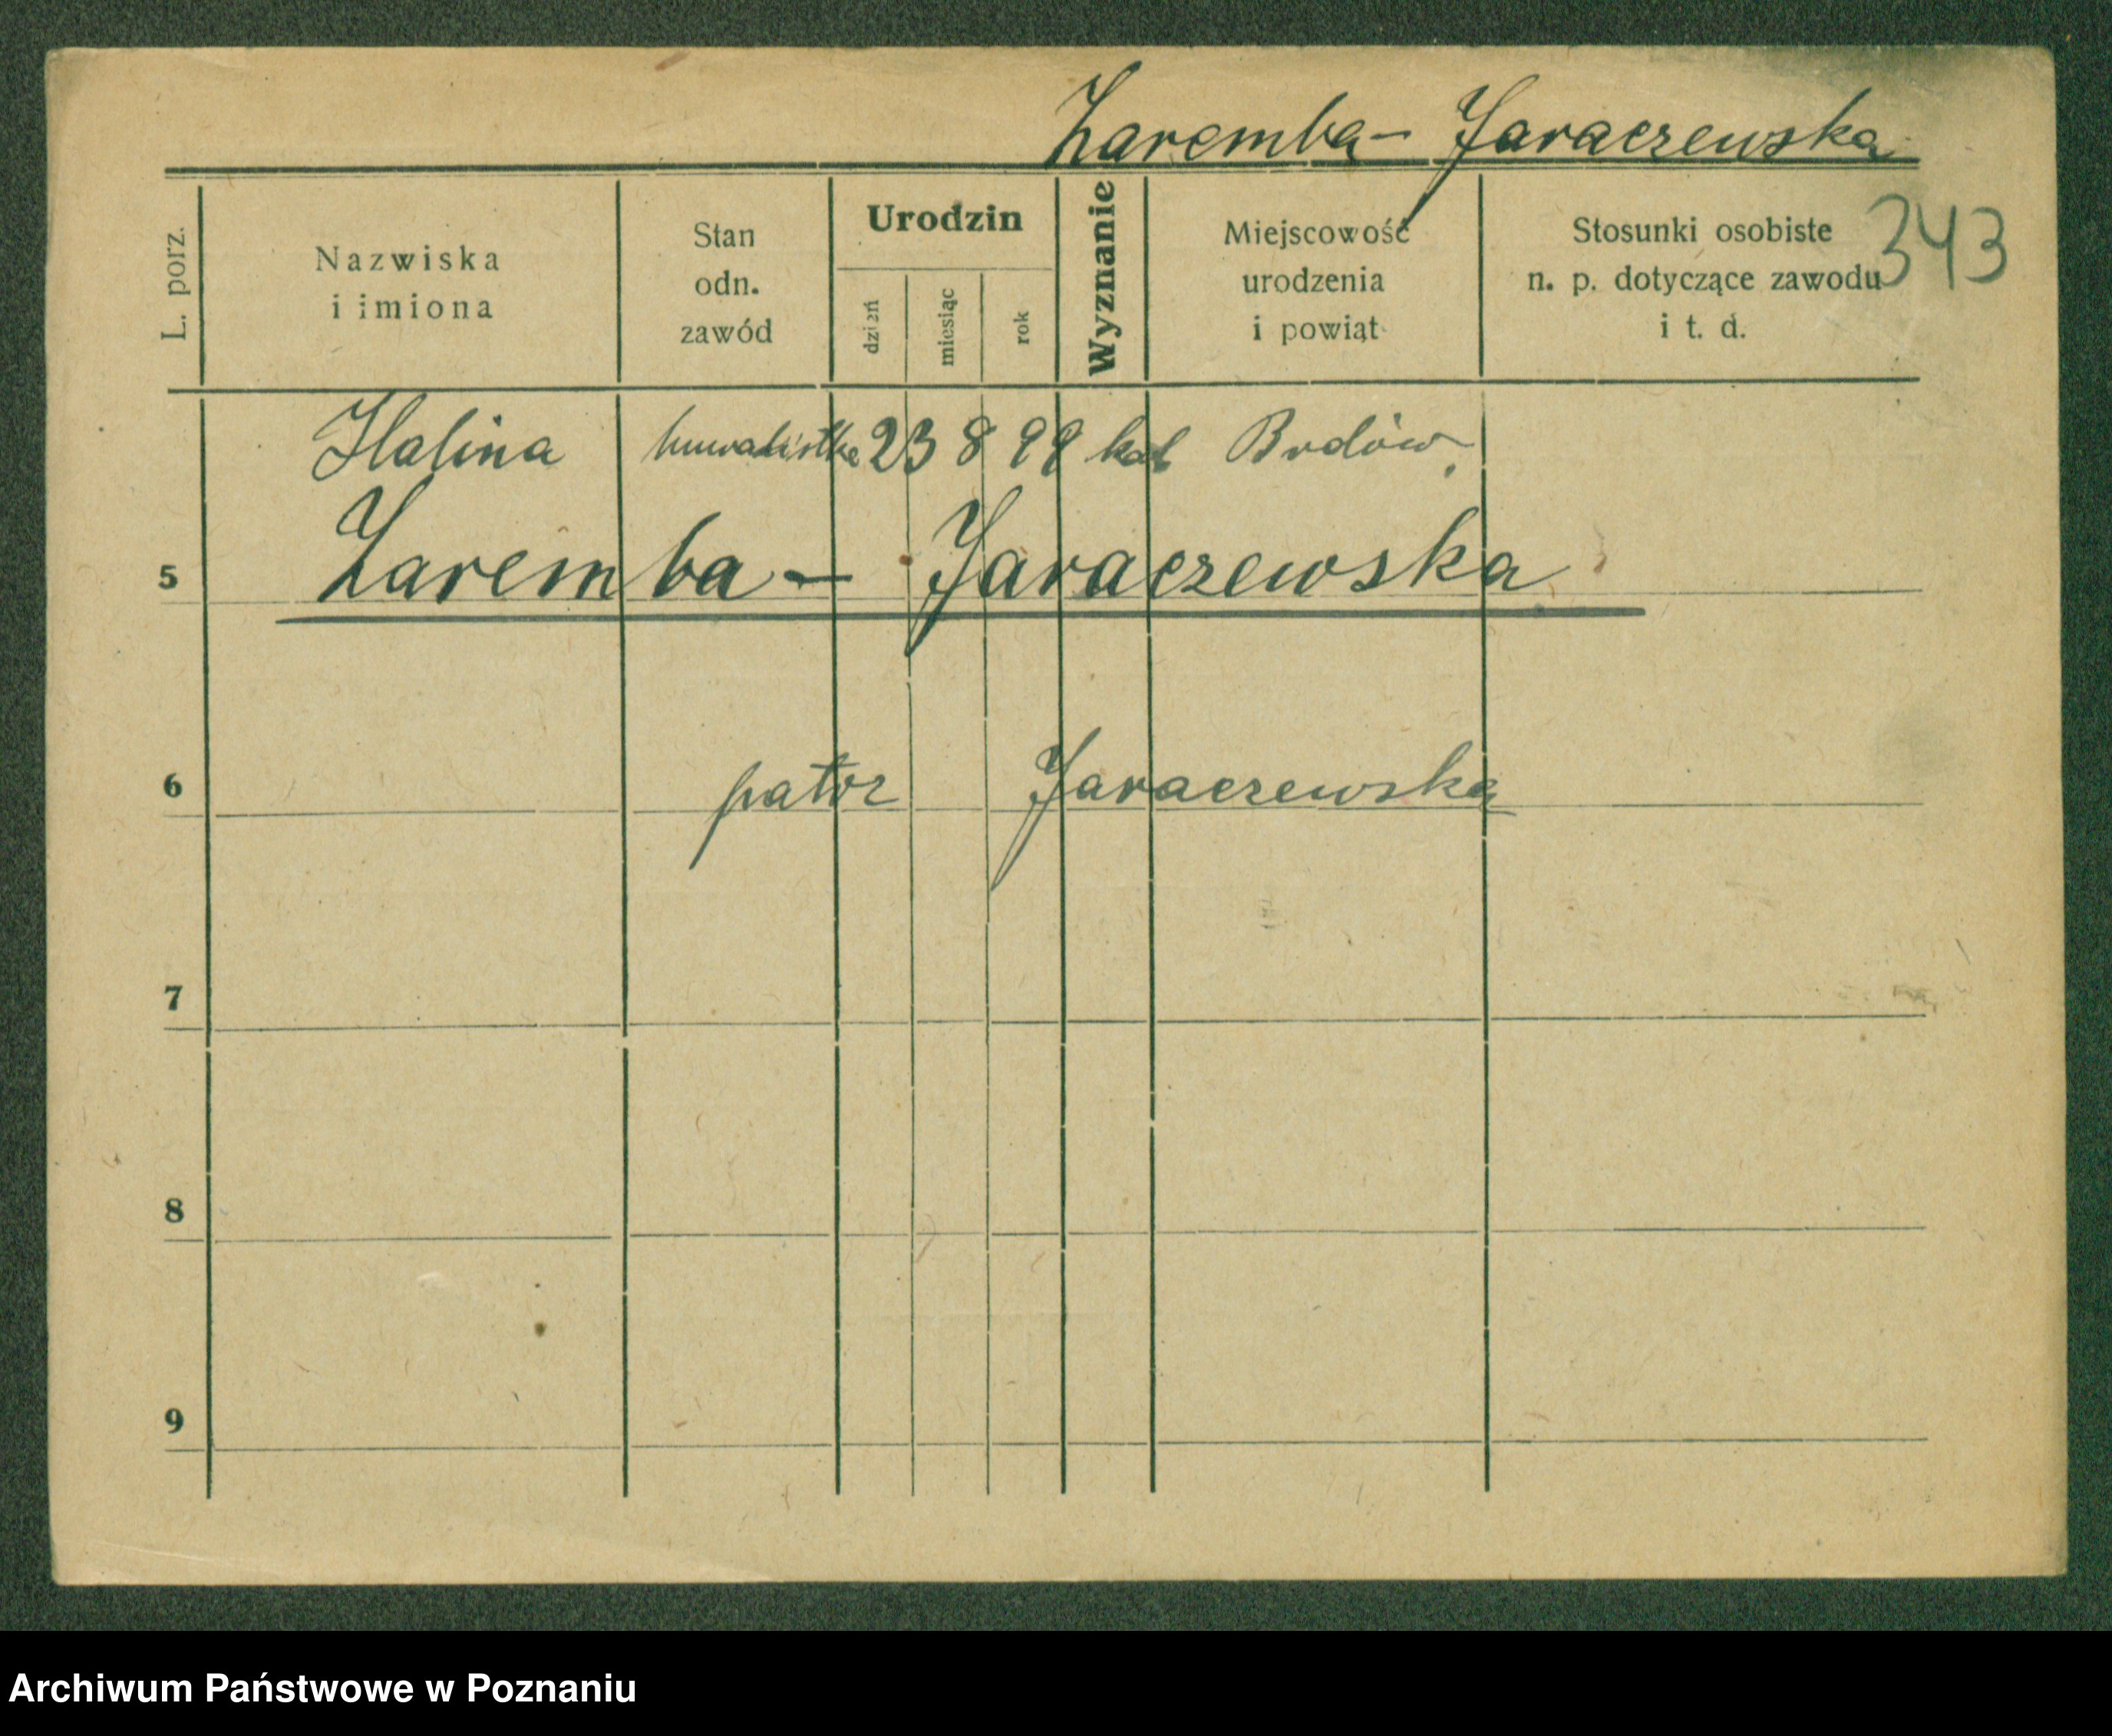 Zaremba - Jaraczewska
343
L. porz.
Nazwiska
i imiona
Stan
odn.
zawód
Urodzin
dzień
miesiąc
rok
Wyznanie
Miejscowość
urodzenia
i powiąt
Stosunki osobiste
n. p. dotyczące zawodu
i t. d.
Halina 23 8 99 kat Brdów.
5 Zaremba - Jaraczewska
6 patrz Jaraczewska
7
8
9
Archiwum Państwowe w Poznaniu